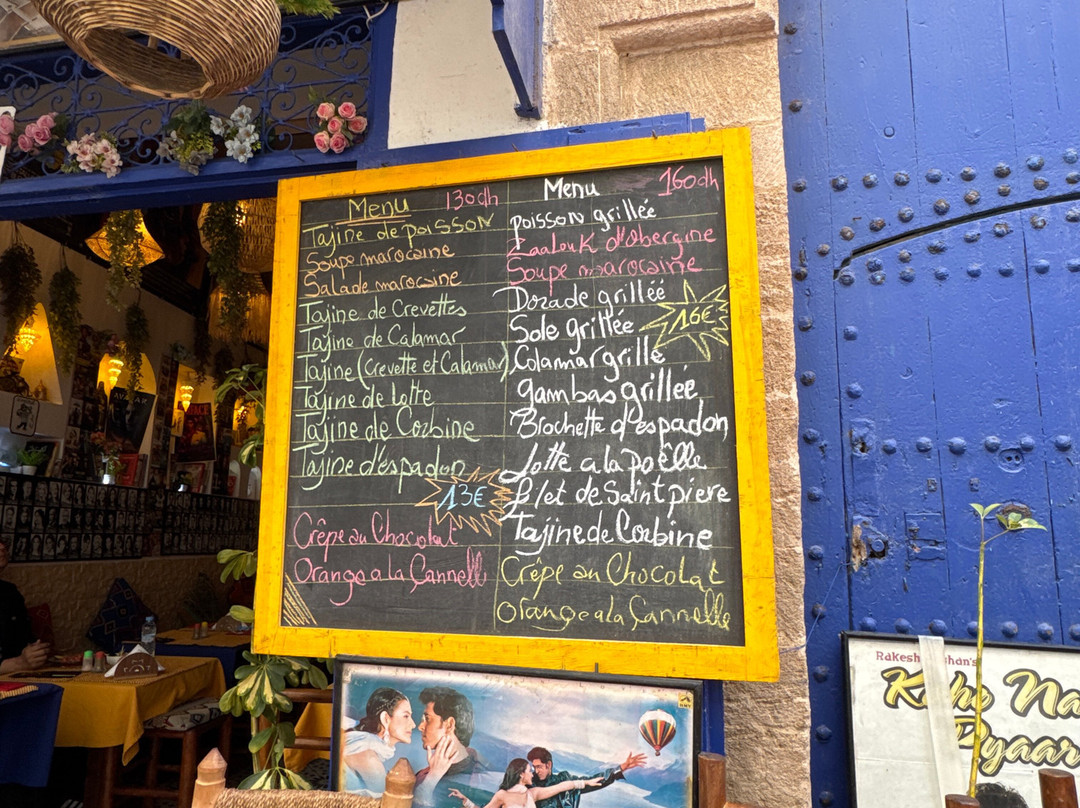 Menu 130dh
Tajine de poisson
Soupe marocaine
Salade marocaine
Tajine de Crevettes
Tajine de Calamar
Tajine (crevette et Calamar)
Tajine de Lotte
Tajine de Corbine
Tajine d'espadon
13€
Crêpe au Chocolat
Orange a la Cannelle
Menu 160dh
poisson grillée
Zaalouk d'Obergine
Soupe marocaine
Dorade grillée
Sole grillée
16€
Calamar grillé
gambas grillée
Brochette d'espadon
Lotte a la poêlle
filet de Saint piere
Tajjine de Corbine
Crêpe au Chocolat
Orange a la Cannelle
Rakesh
Kaho Na
Pyaar